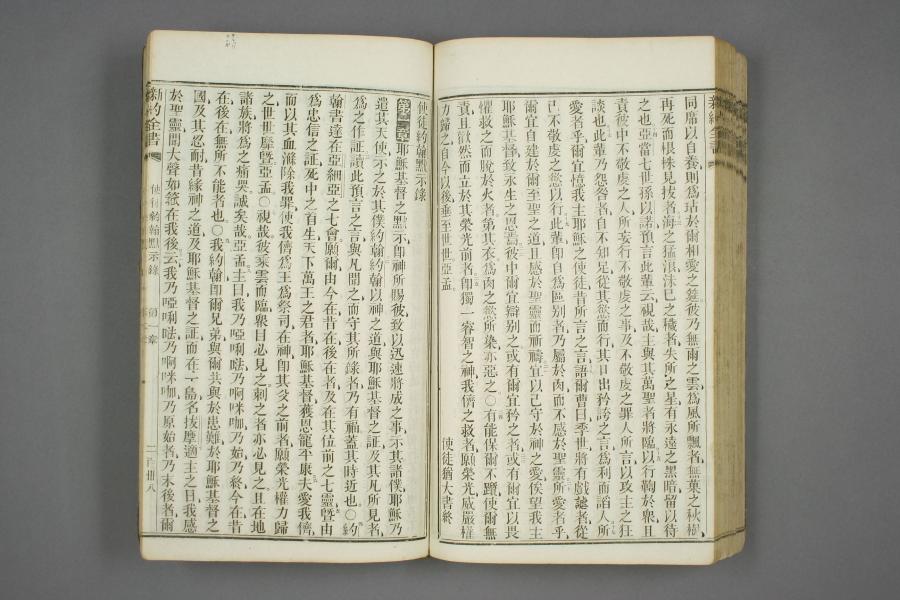 同席以自養則爲玷於爾相愛之筵彼乃無雨之雲爲風所飄者無菓之秋樹
再死而根株見拔者海之猛浪沫已之穢者失所之星有永遠之黑暗留以待
之也亞當七世孫以諾預言此輩云視哉主與其萬聖者將臨以行鞫於衆且
責彼中不敬虔之人所妄行不敬虔之事及不敬虔之罪人所言以攻主之狂
談也此輩乃怨咨者自不知足從其慾而行其口出矜誇之言爲利而諂人所
愛者乎爾宜憶我主耶穌之使徒昔所言之言語爾曹曰季世將有戲謔者從
己不敬虔之慾以行此輩卽自爲區别者乃屬於肉而不感於聖靈所愛者乎
爾宜自建於爾至聖之道且感於聖靈而祈禱宜以己守於神之愛俟望我主
耶穌基督致永生之恩焉彼中爾宜辯别之或有爾宜矜之者或有爾宜以畏
懼救之而脫於火者第其衣爲肉之慾所染亦惡之〇有能保爾不躓使爾無
責歡然而立於其榮光前者卽獨一睿智之神我儕之救者願榮光威嚴權
力歸之自今以後垂至世世亞孟
使徒猶大書終
使徒約翰默示錄
第一章耶穌基督之默示卽神所賜彼致以迅速將成之事示其諸僕耶穌乃
遣其天使示之於其僕約翰約翰以神之道與耶穌基督之証及其凡所見者
爲之作証讀此預言之言與凡聞之而守其所錄者乃有福蓋其時近也〇約
翰書達在亞細亞之七會願爾由今在昔在後在者及在其位前之七靈曁由
爲忠信之証死中之首生天下萬王之君者耶穌基督獲恩寵平康夫愛我儕
而以其血滌除我罪使我儕爲王爲祭司在神卽其父之前者願榮光權力歸
之世世靡曁亞孟〇視哉彼乘雲而臨衆目必見之刺之者亦必見之且在地
諸族將爲之痛哭誠矣哉亞孟主曰我乃啞唎㗭乃啊咪咖乃始乃終今在昔
在後在無所不能者也〇我約翰卽爾兄弟與爾共與於患難於耶穌基督之
國及其忍耐昔緣神之道及耶穌基督之証而在一島名拔摩適主之日我感
於聖靈聞大聲如號在我後云我乃啞唎㗭乃啊咪咖乃原始者乃末後者爾
新約全書
使徒約翰默示錄
第一章
二百卌八